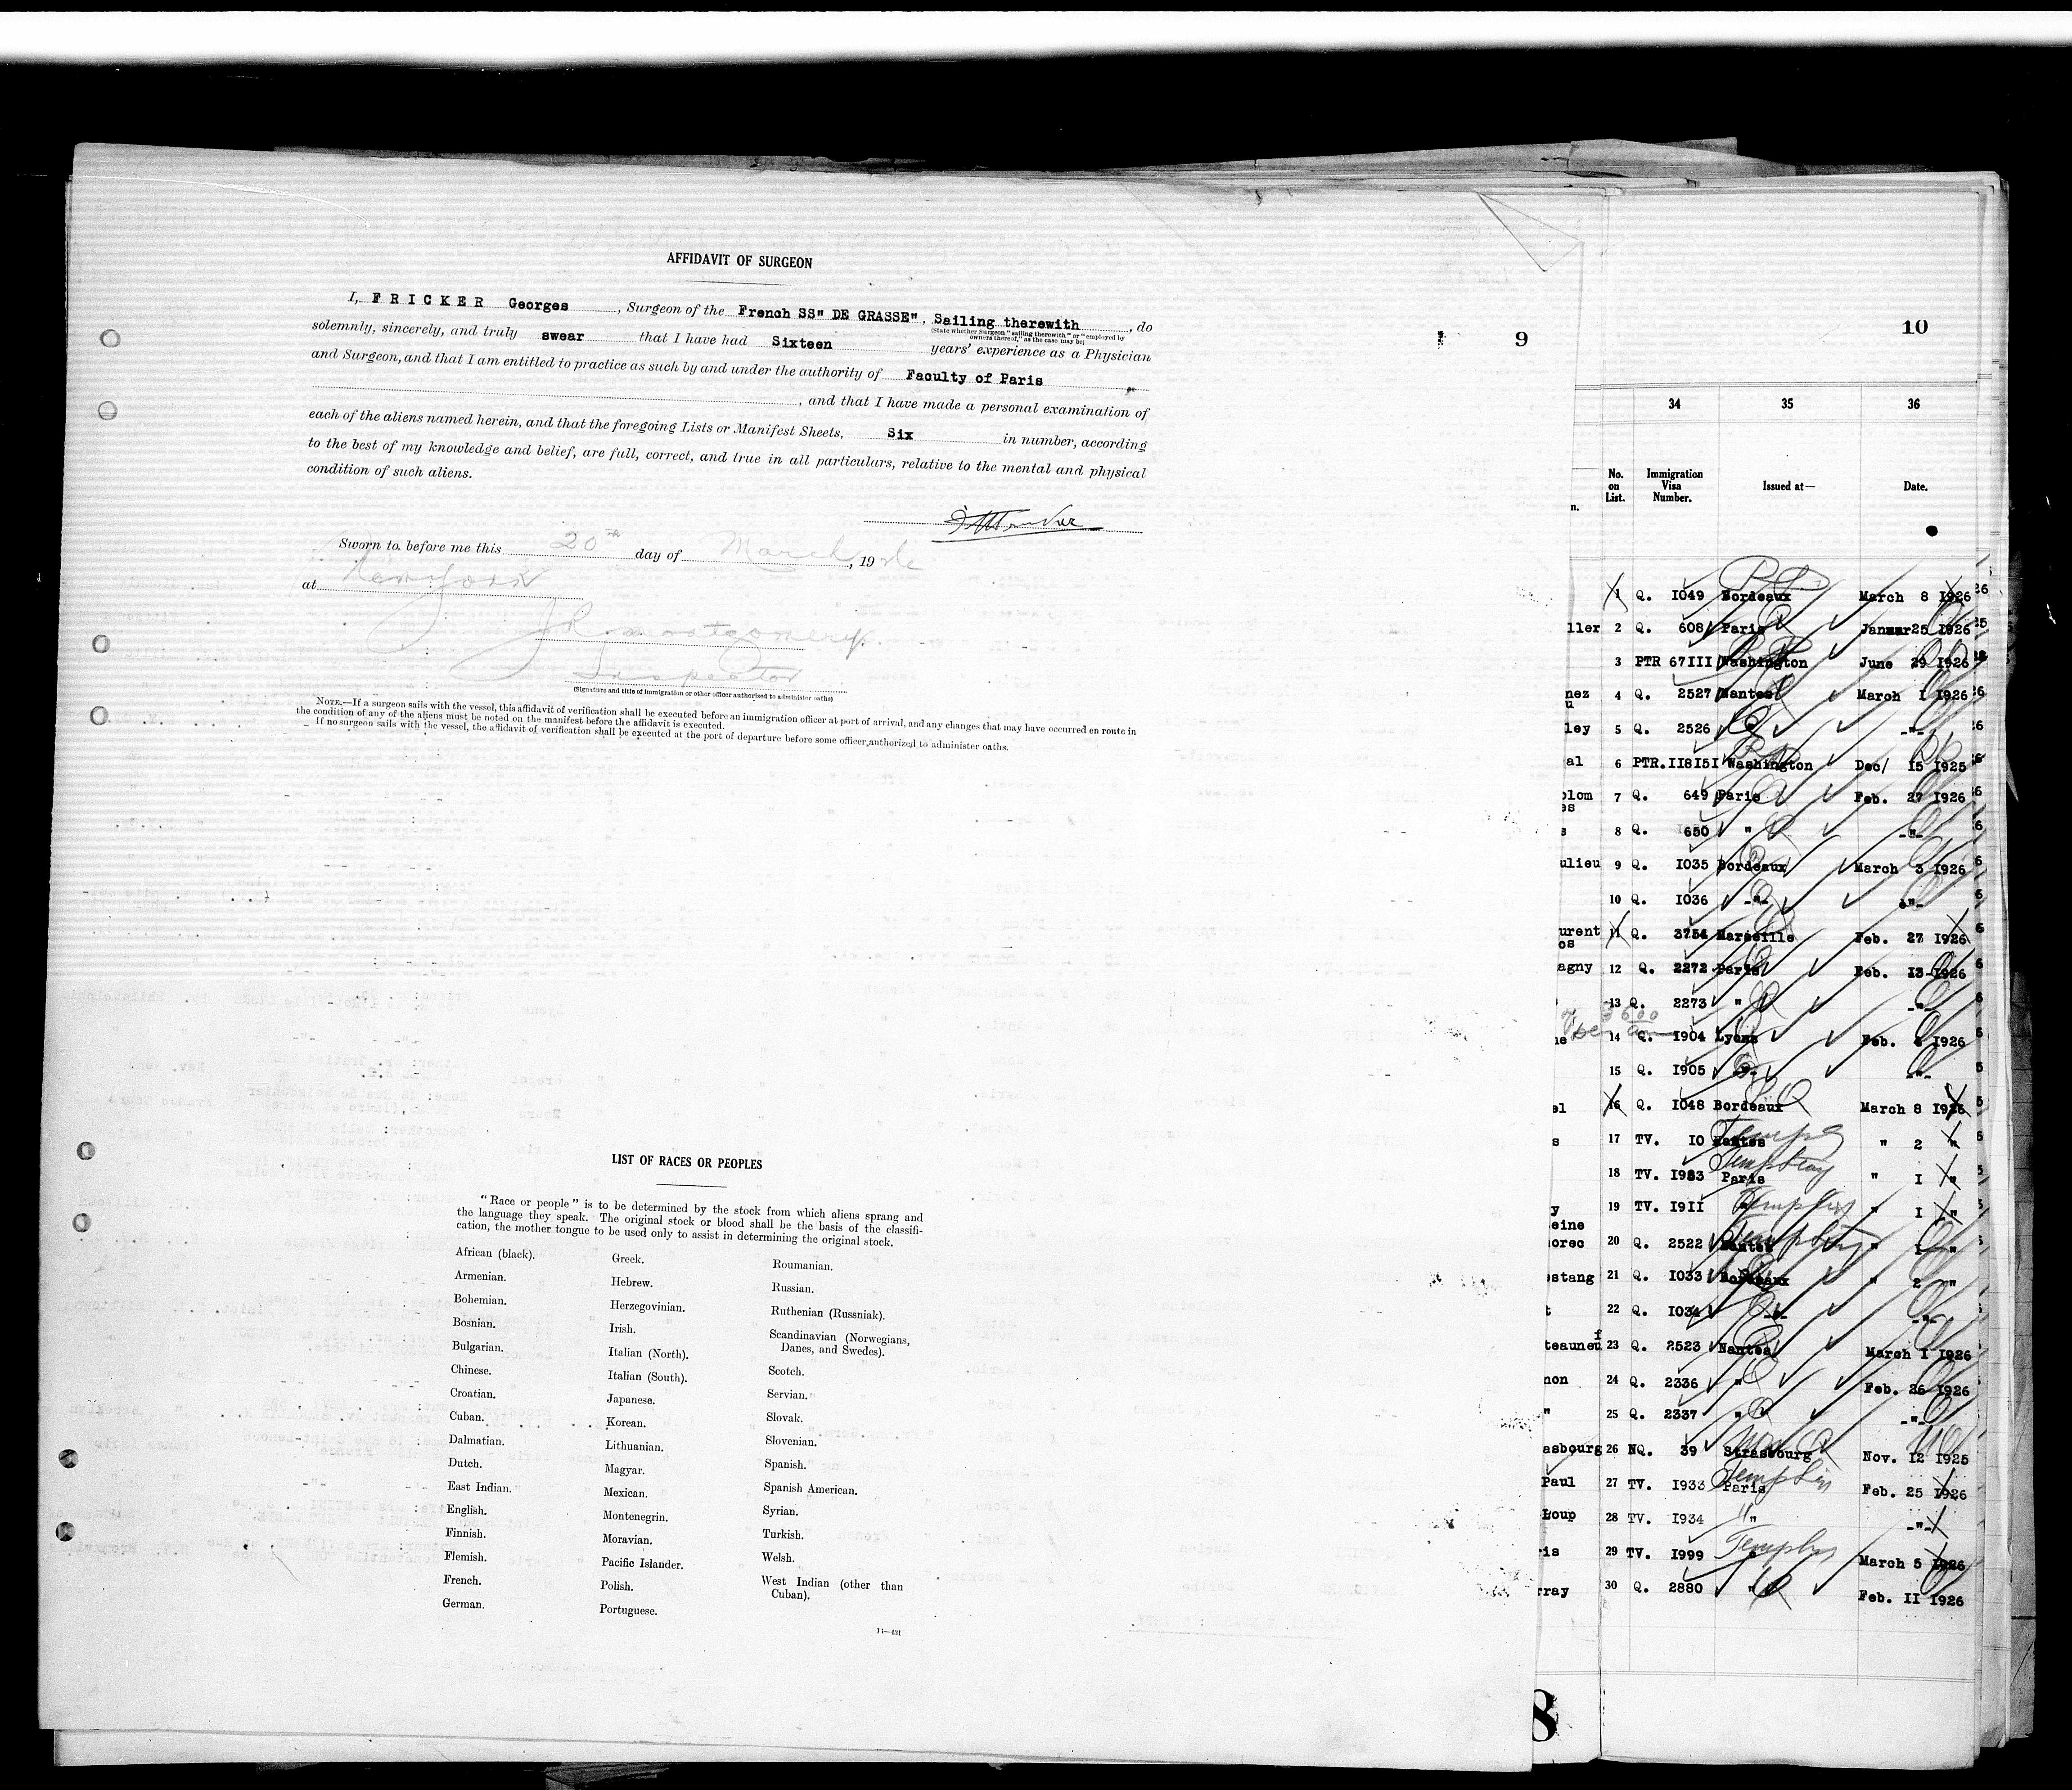 AFFIDAVIT OF SURGEON
I, FRICKER Georges, Surgeon of the French SS" DE GRASSE", Sailing therewith, do
(State whether Surgeon "sailing therewith" or "employed by
owners thereof," as the case may be)
solemnly, sincerely, and truly swear that I have had Sixteen years' experience as a Physician
and Surgeon, and that I am entitled to practice as such by and under the authority of Faculty of Paris
, and that I have made a personal examination of
each of the aliens named herein, and that the foregoing Lists or Manifest Sheets, Six in number, according
to the best of my knowledge and belief, are full, correct, and true in all particulars, relative to the mental and physical
condition of such aliens.
Sworn to before me this 20th day of March, 1926
at New York
J R Montgomery
Inspector
(Signature and title of immigration or other officer authorized to administer oaths)
NOTE.—If a surgeon sails with the vessel, this affidavit of verification shall be executed before an immigration officer at port of arrival, and any changes that may have occurred en route in
the condition of any of the aliens must be noted on the manifest before the affidavit is executed.
If no surgeon sails with the vessel, the affidavit of verification shall be executed at the port of departure before some officer authorized to administer oaths.
LIST OF RACES OR PEOPLES
"Race or people" is to be determined by the stock from which aliens sprang and
the language they speak. The original stock or blood shall be the basis of the classifi-
cation, the mother tongue to be used only to assist in determining the original stock.
African (black).
Armenian.
Bohemian.
Bosnian.
Bulgarian.
Chinese.
Croatian.
Cuban.
Dalmatian.
Dutch.
East Indian.
English.
Finnish.
Flemish.
French.
German.
Greek.
Hebrew.
Herzegovinian.
Irish.
Italian (North).
Italian (South).
Japanese.
Korean.
Lithuanian.
Magyar.
Mexican.
Montenegrin.
Moravian.
Pacific Islander.
Polish.
Portuguese.
Roumanian.
Russian.
Ruthenian (Russniak).
Scandinavian (Norwegians,
Danes, and Swedes).
Scotch.
Servian.
Slovak.
Slovenian.
Spanish.
Spanish American.
Syrian.
Turkish.
Welsh.
West Indian (other than
Cuban).
14—431
9
10
34 35 36
No. on List. Immigration Visa Number. Issued at— Date.
1 Q. 1049 Bordeaux March 8 1926
ller 2 Q. 608 Paris Januar 25 1926
3 PTR 67111 Washington June 29 1926
nez 4 Q. 2527 Nantes March 1 1926
ley 5 Q. 2526 -"-
al 6 PTR. 118151 Washington Dec/ 15 1925
olom 7 Q. 649 Paris Feb. 27 1926
s 8 Q. 650 " -"-
ulieu 9 Q. 1035 Bordeaux March 3 1926
10 Q. 1036 -"- -"-
urent 11 Q. 3754 Marseille Feb. 27 1926
agny 12 Q. 2272 Paris Feb. 13 1926
13 Q. 2273 " -"-
ne 14 Q. 1904 Lyons Feb. 1926
15 Q. 1905 -"- -"-
el 16 Q. 1048 Bordeaux March 8 1926
s 17 TV. 10 Nantes " 2 "
18 TV. 1983 Paris " 1 "
y 19 TV. 1911 " " 1 "
orec 20 Q. 2522 Nantes " 1 "
stang 21 Q. 1033 Bordeaux " 2 "
t 22 Q. 1034 -"- -"-
teauneuf 23 Q. 2523 Nantes March 1 1926
non 24 Q. 2336 " Feb. 26 1926
" 25 Q. 2337 " -"-
asbourg 26 NQ. 39 Strasbourg Nov. 12 1925
Paul 27 TV. 1933 Paris Feb. 25 1926
Loup 28 TV. 1934 " -"-
ris 29 TV. 1999 " March 5 1926
rray 30 Q. 2880 " Feb. 11 1926
8